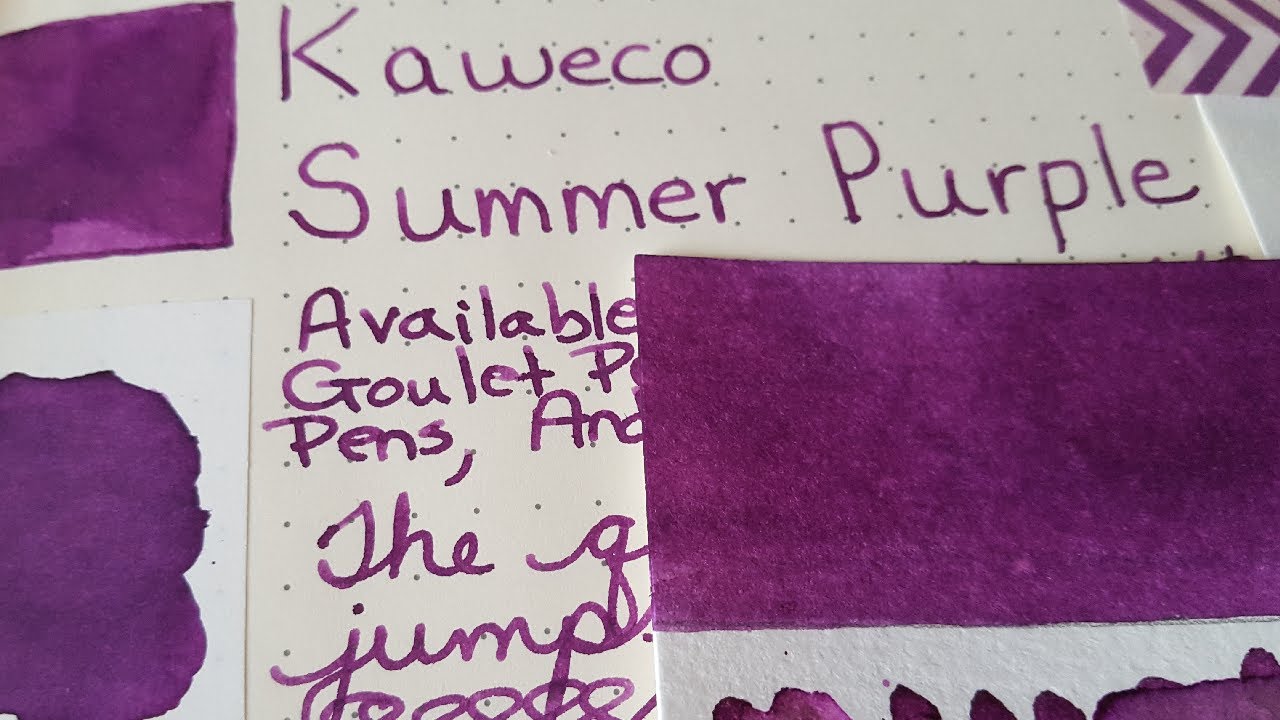 Kaweco
Summer Purple
Available
Goulet
Pens,
The